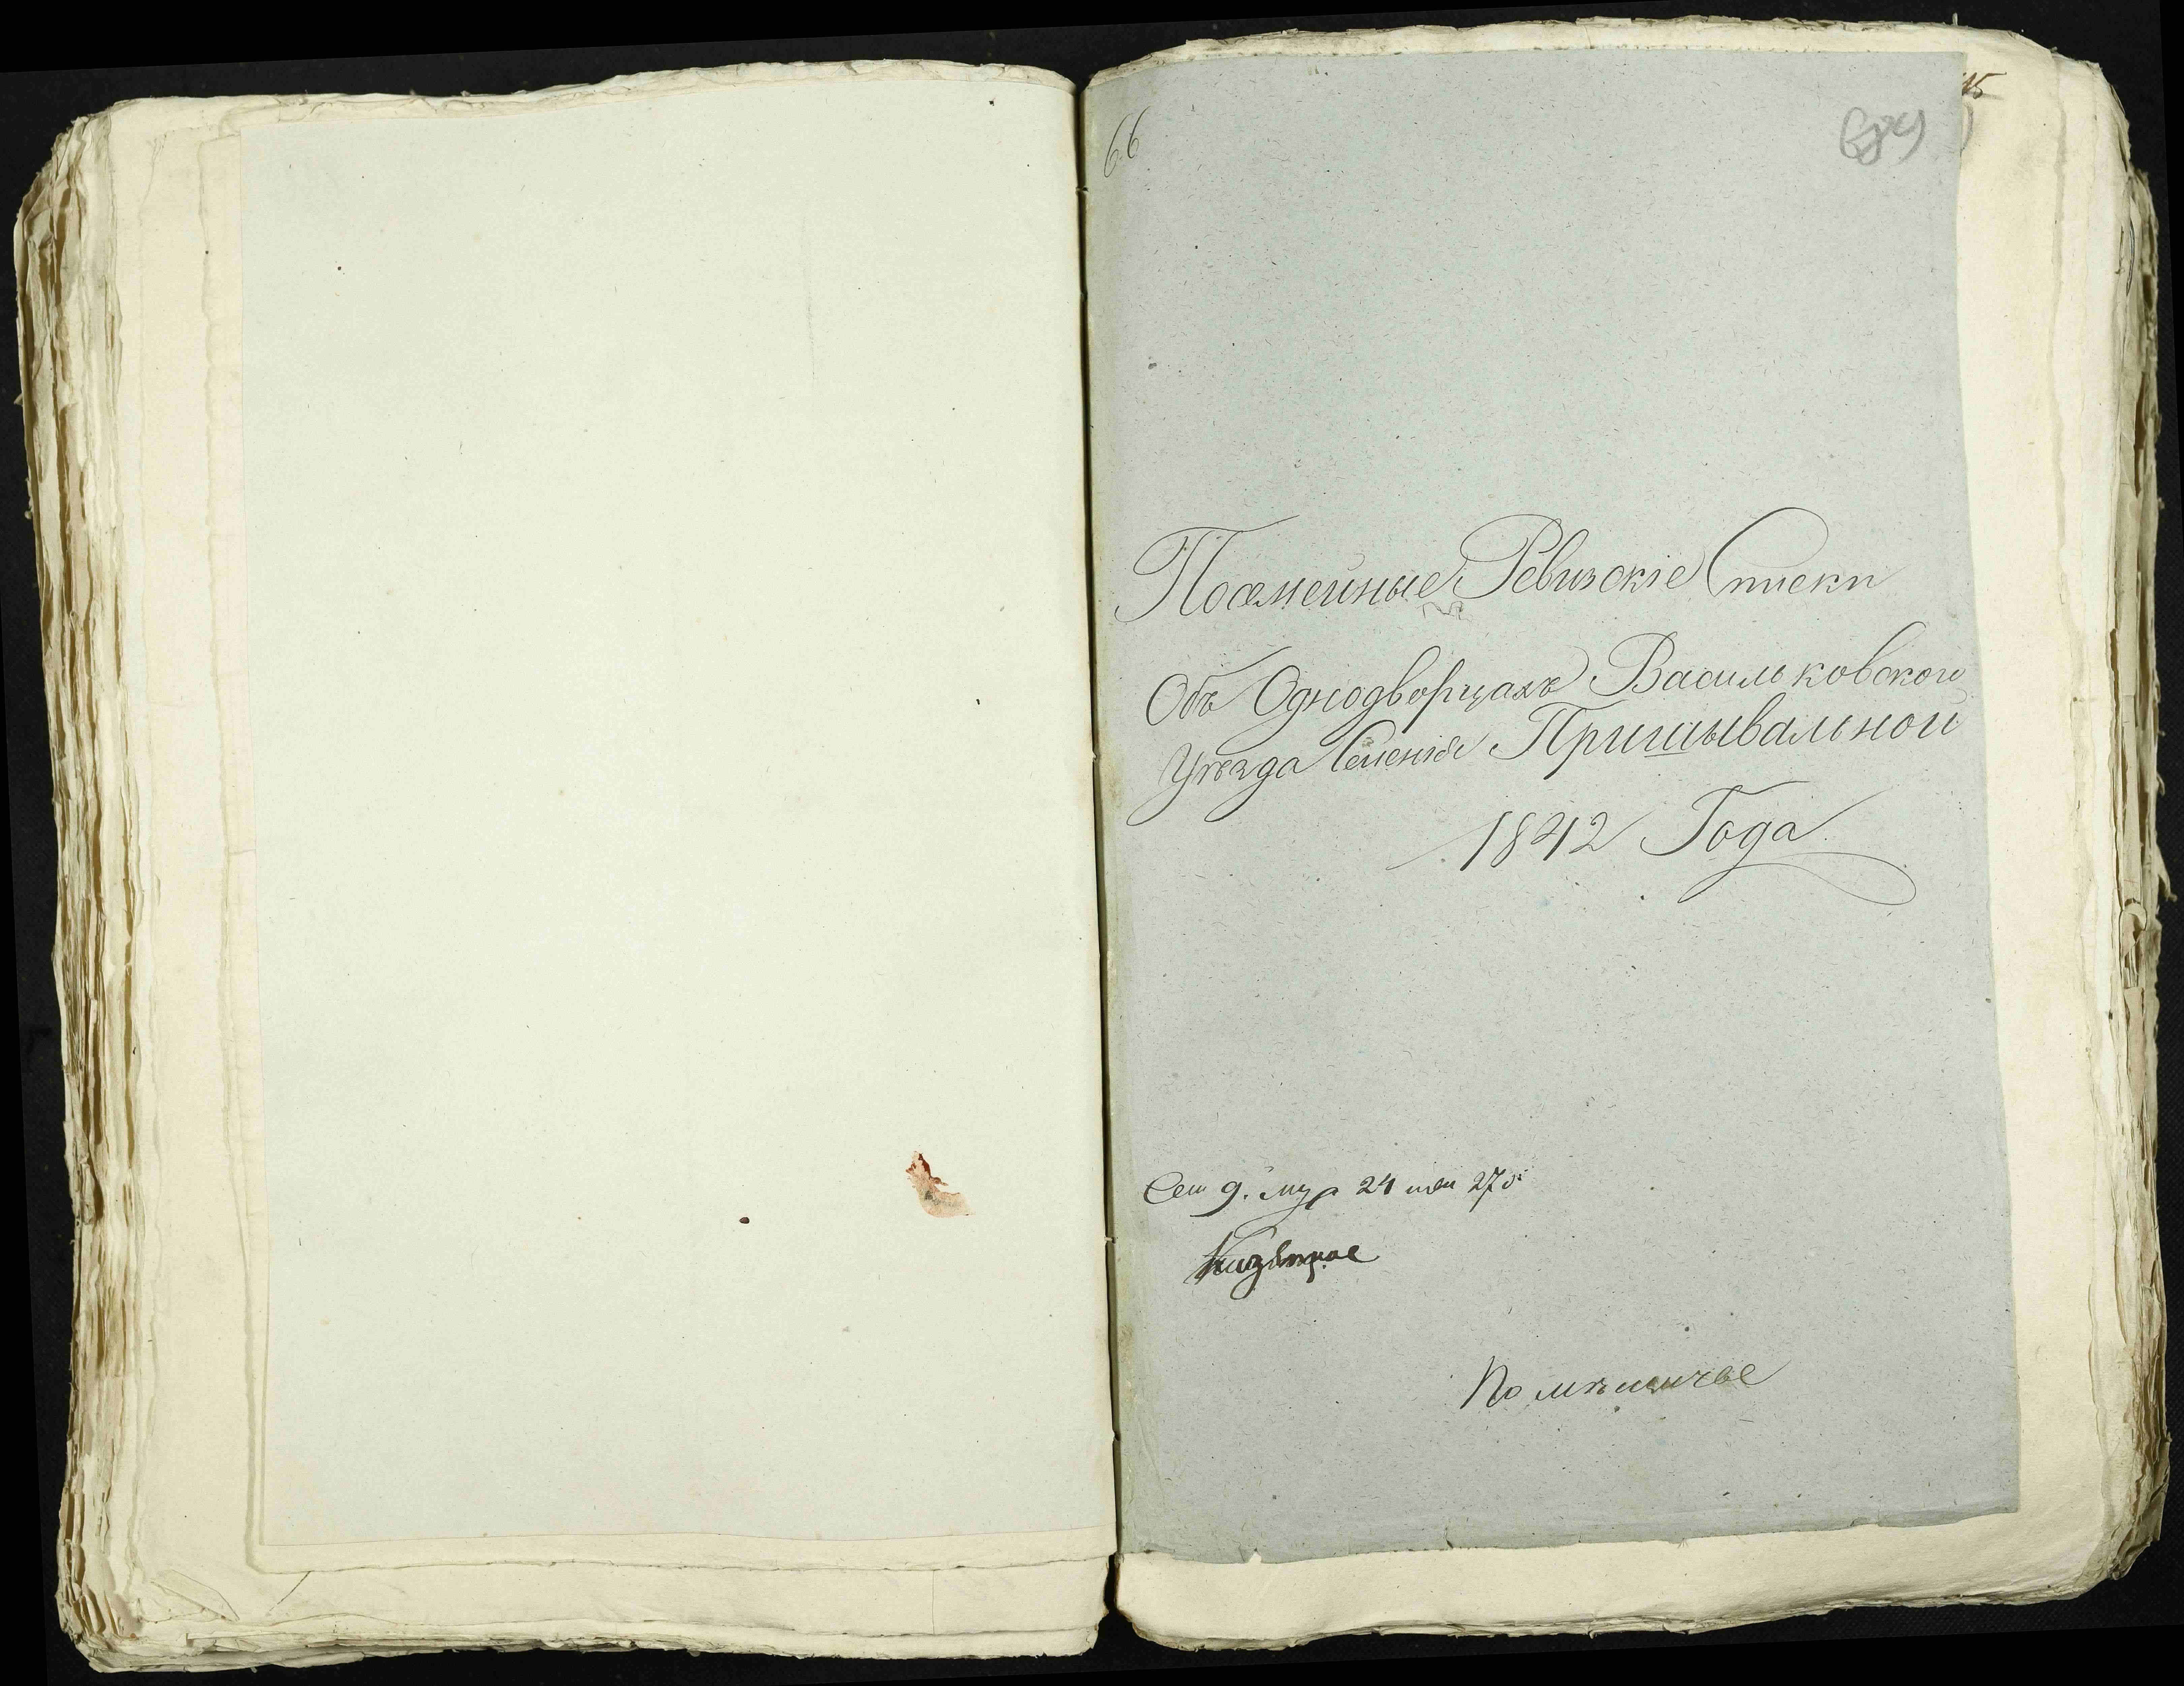 66
Посемейные Ревизскіе Списки
Объ Однодворцахъ Васильковскоги
Уѣзда Селенія Пришывальной
1842 Года
Сем 9. муж 24 жен 27 д:
Помѣщичье